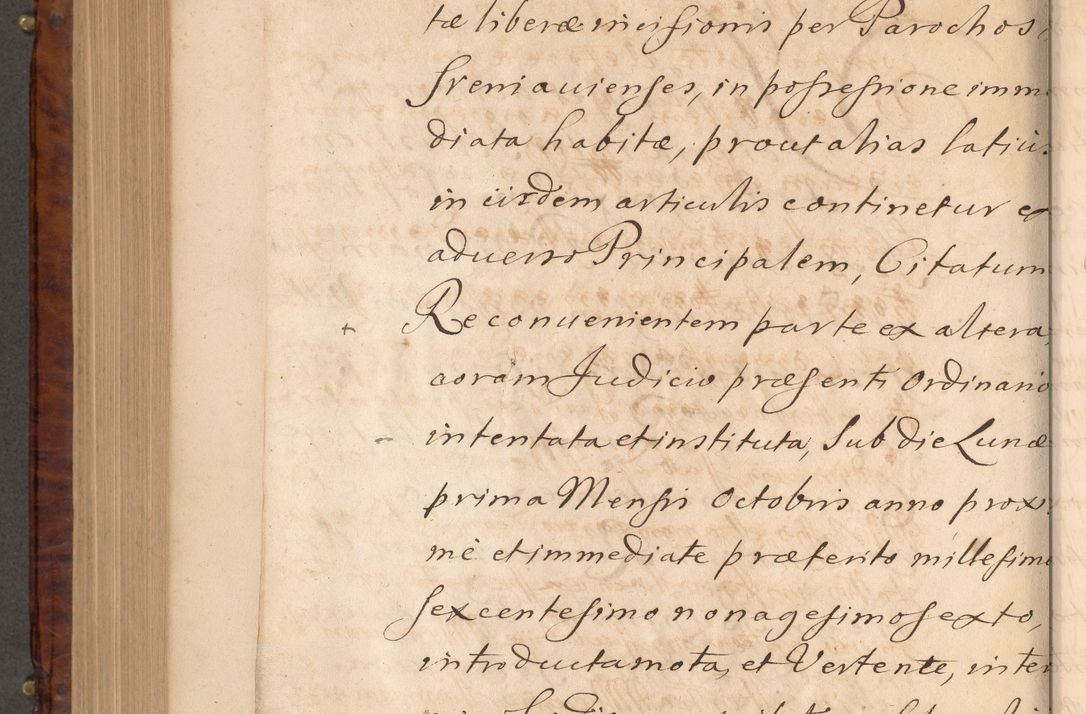 tæ liberæ incisionis per Parochos
Sreniauienses, in possessione imm
diata habitæ, prout alias latiùs
in iisdem articulis continetur ex
aduerso Principalem, Citatum
Reconuenientem parte ex altera,
coram Judicio præsenti Ordinario
intentata et instituta, Sub die Lunæ
prima Mensis Octobris anno proxi
mè et immediate præterito millesimo
sexcentesimo nonagesimo sexto,
introducta mota, et Vertente, inter